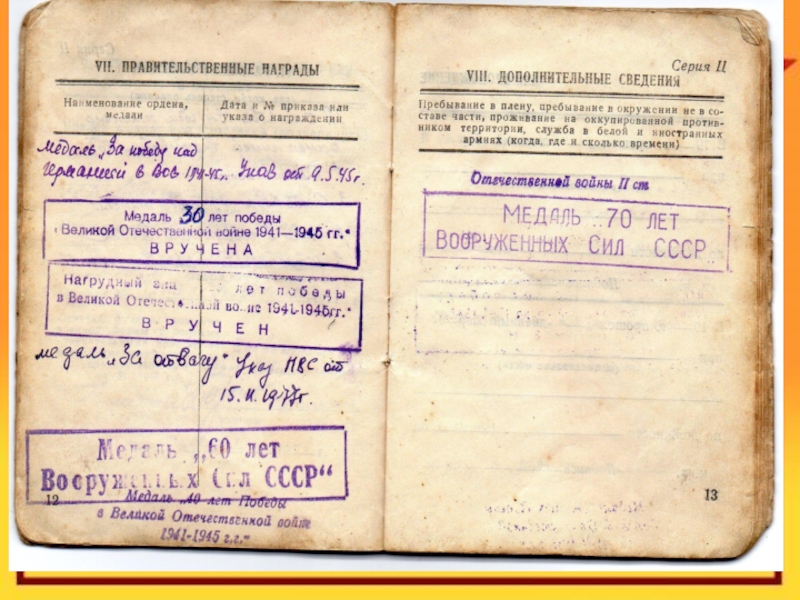 VII. ПРАВИТЕЛЬСТВЕННЫЕ НАГРАДЫ
Наименование ордена, медали
Дата и № приказа или указа о награждении
медаль „За победу над
германией в Вов 1941-45г. Указ от 9.5.45г.
Медаль 30 лет победы
в Великой Отечественной войне 1941—1945 гг.“
ВРУЧЕНА
Нагрудный зна лет победы
в Великой Отечест ой войне 1941-1945гг.“
ВРУЧЕН
медаль „За отвагу“ Указ ПВС от
15.II.1977г.
Медаль „60 лет
Вооруженных Сил СССР“
12
Медаль „40 лет Победы
в Великой Отечественной войне
1941-1945 г.г.“
Серия Ц
VIII. ДОПОЛНИТЕЛЬНЫЕ СВЕДЕНИЯ
Пребывание в плену, пребывание в окружении не в со-
ставе части, проживание на оккупированной против-
ником территории, служба в белой и иностранных
армиях (когда, где и сколько времени)
Отечественной войны II ст
МЕДАЛЬ „70 ЛЕТ
ВООРУЖЕННЫХ СИЛ СССР
13